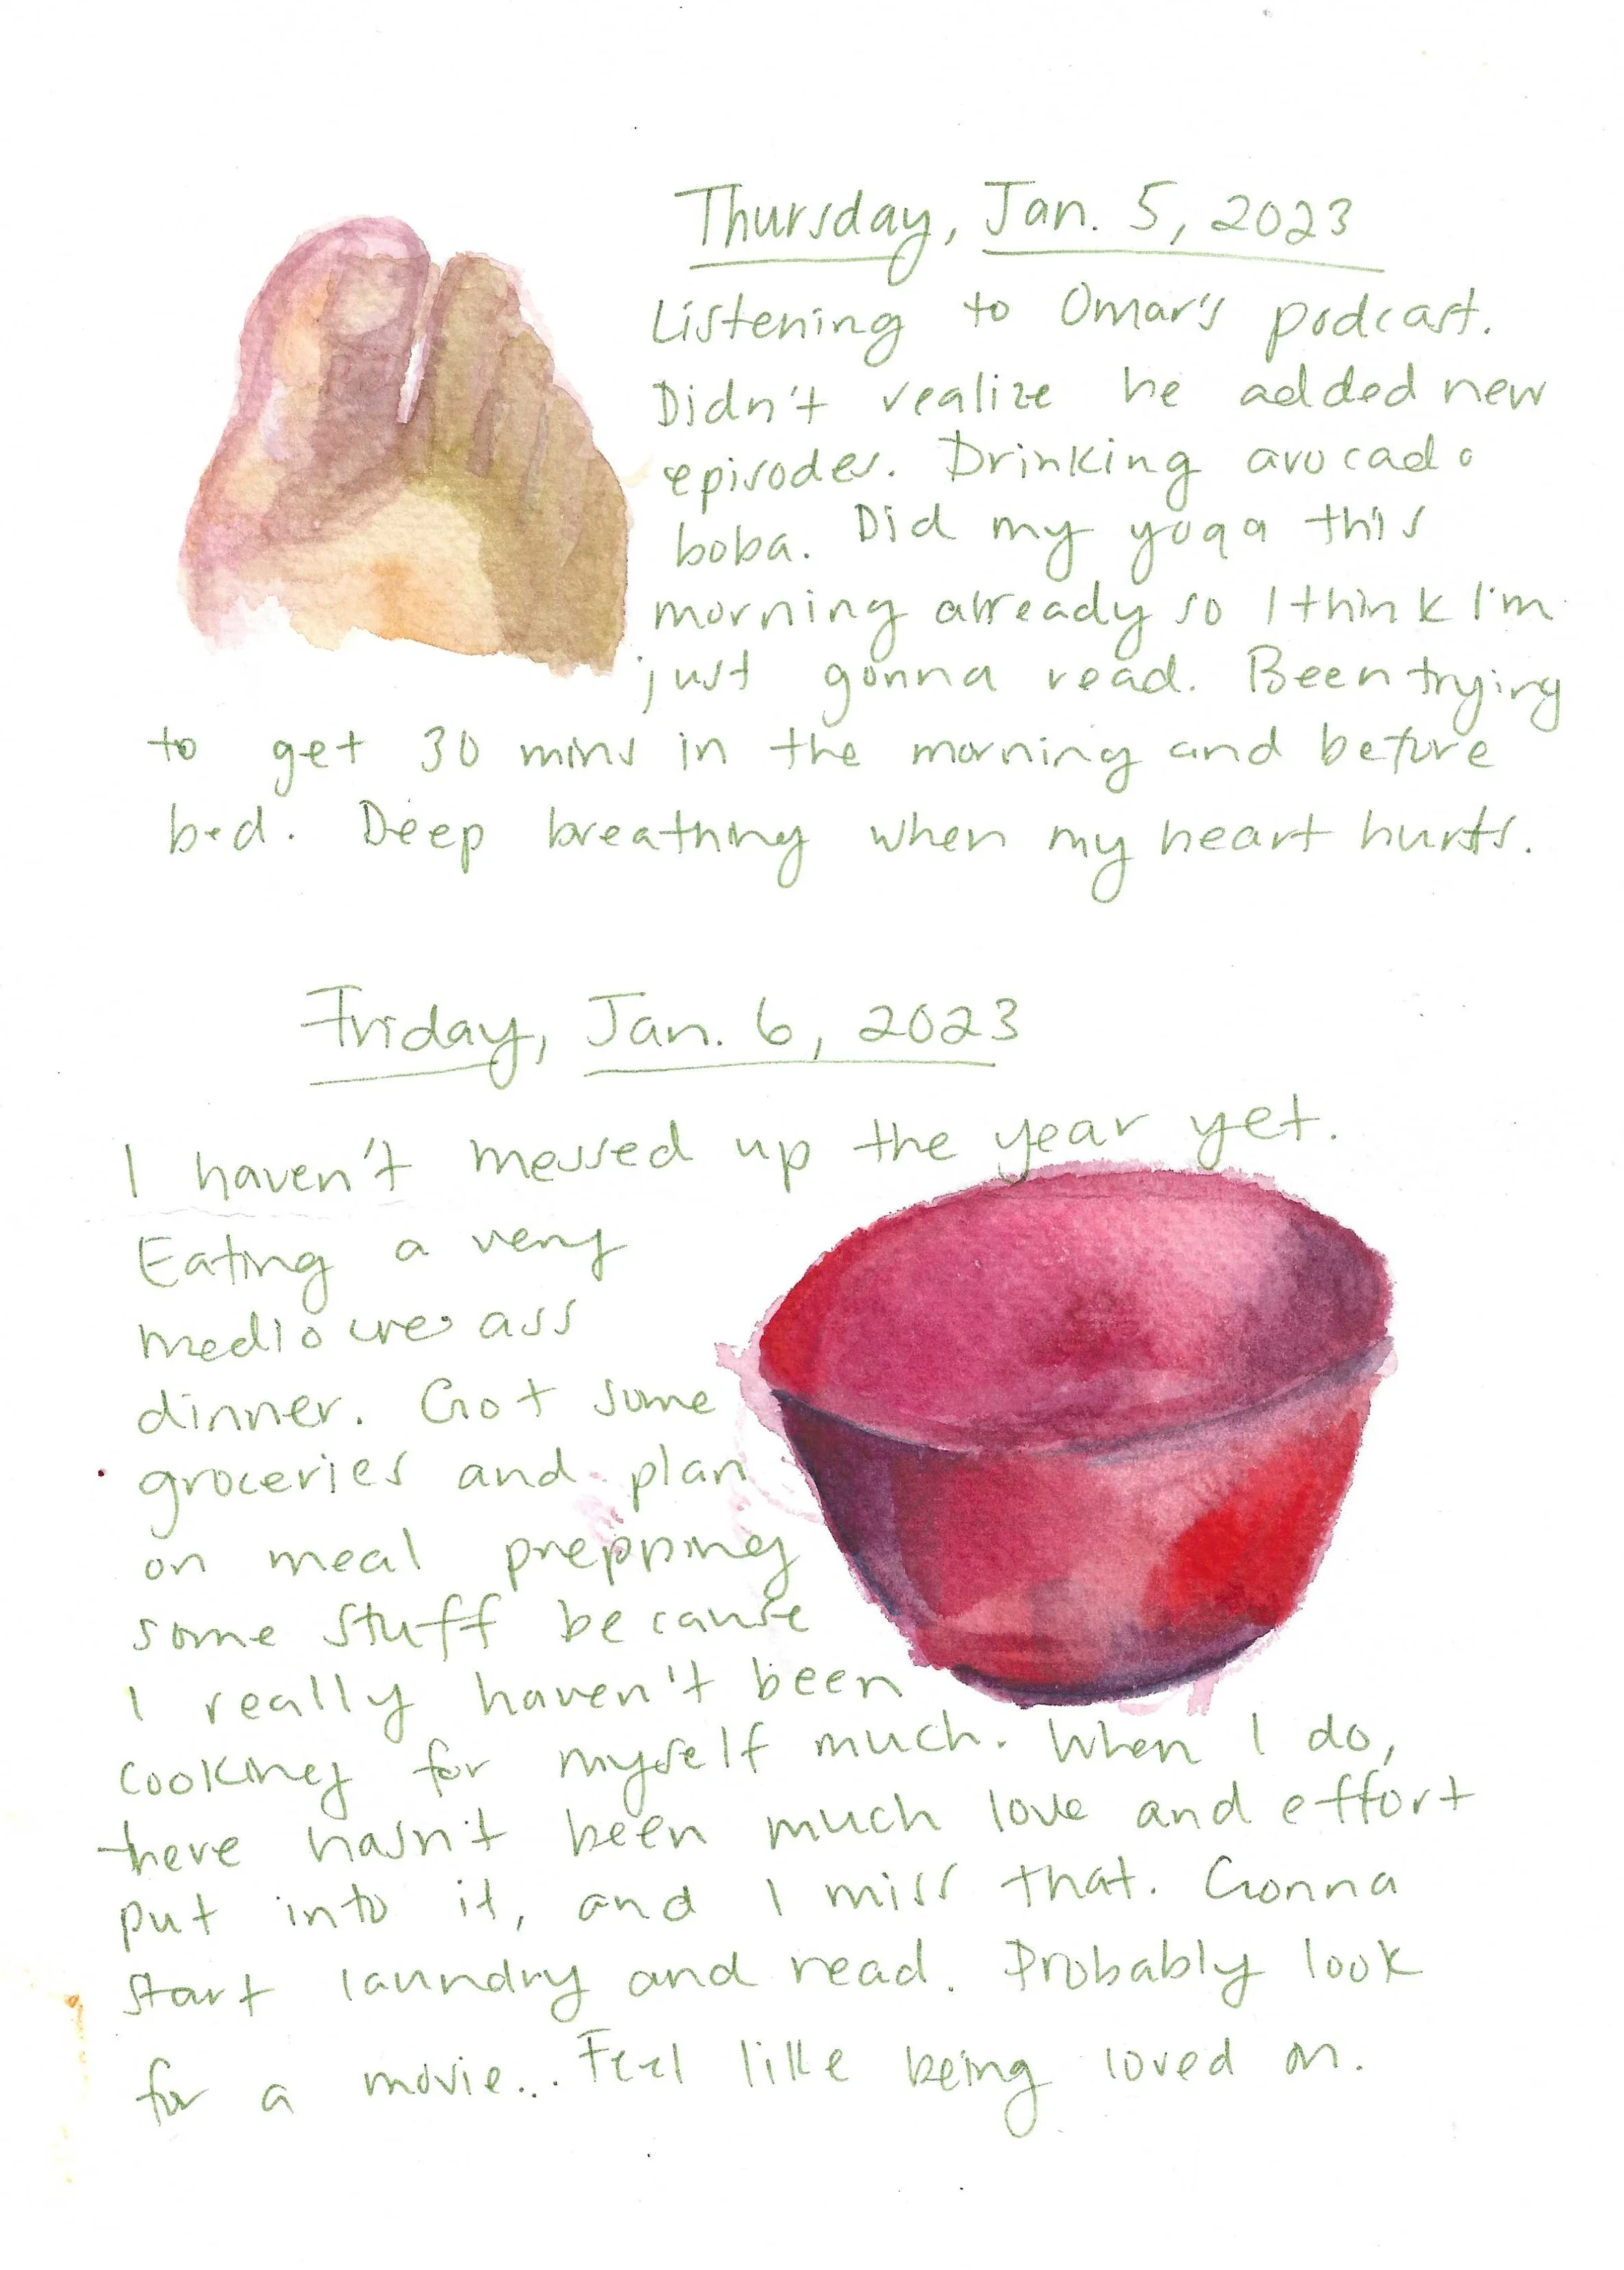 Thursday, Jan. 5, 2023
Listening to Omar's podcast.
Didn't realize he added new
episodes. Drinking avocado
boba. Did my yoga this
morning already so I think I'm
just gonna read. Been trying
to get 30 mins in the morning and before
bed. Deep breathing when my heart hurts.
Friday, Jan. 6, 2023
I haven't messed up the year yet.
Eating a very
mediocre ass
dinner. Got some
groceries and plan
on meal prepping
some stuff because
I really haven't been
cooking for myself much. When I do,
there hasn't been much love and effort
put into it, and I miss that. Gonna
start laundry and read. Probably look
for a movie... Feel like being loved on.